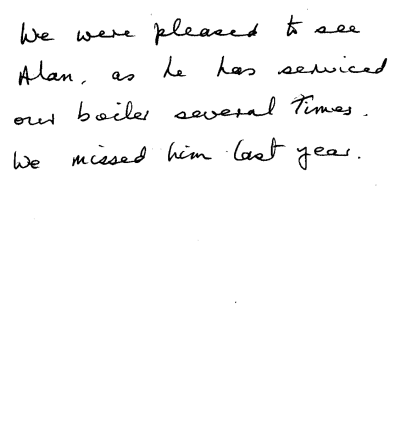 We were pleased to see
Alan, as he has serviced
our boiler several times.
We missed him last year.